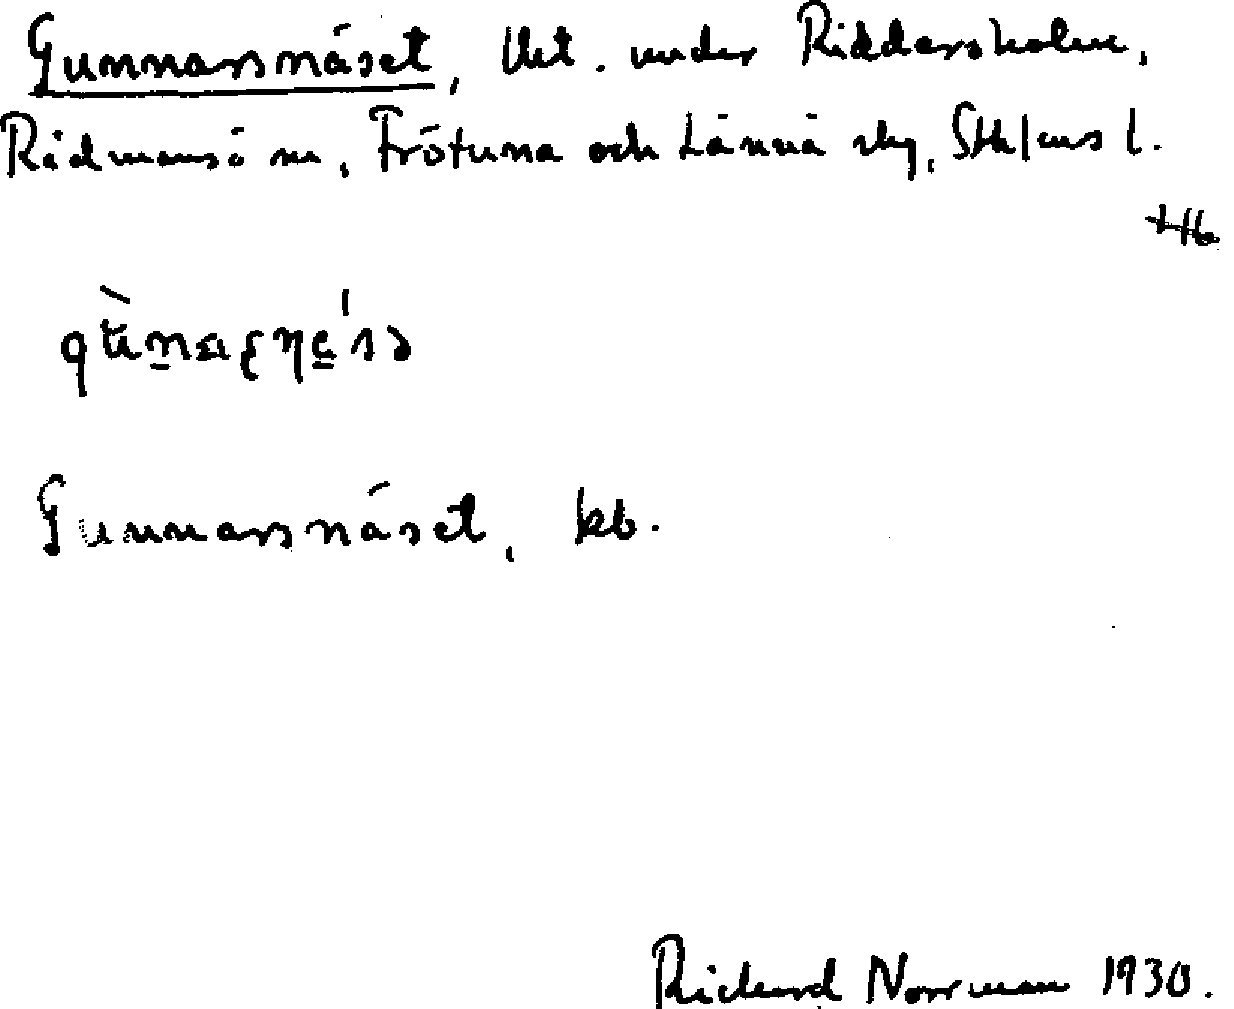 Gunnarsnäset, lht. under Riddersholm,
Rådmansö sn, Frötuna och Länna skg, Sthlms l.
Gunnarsnäset, kb.
Richard Norrman 1930.